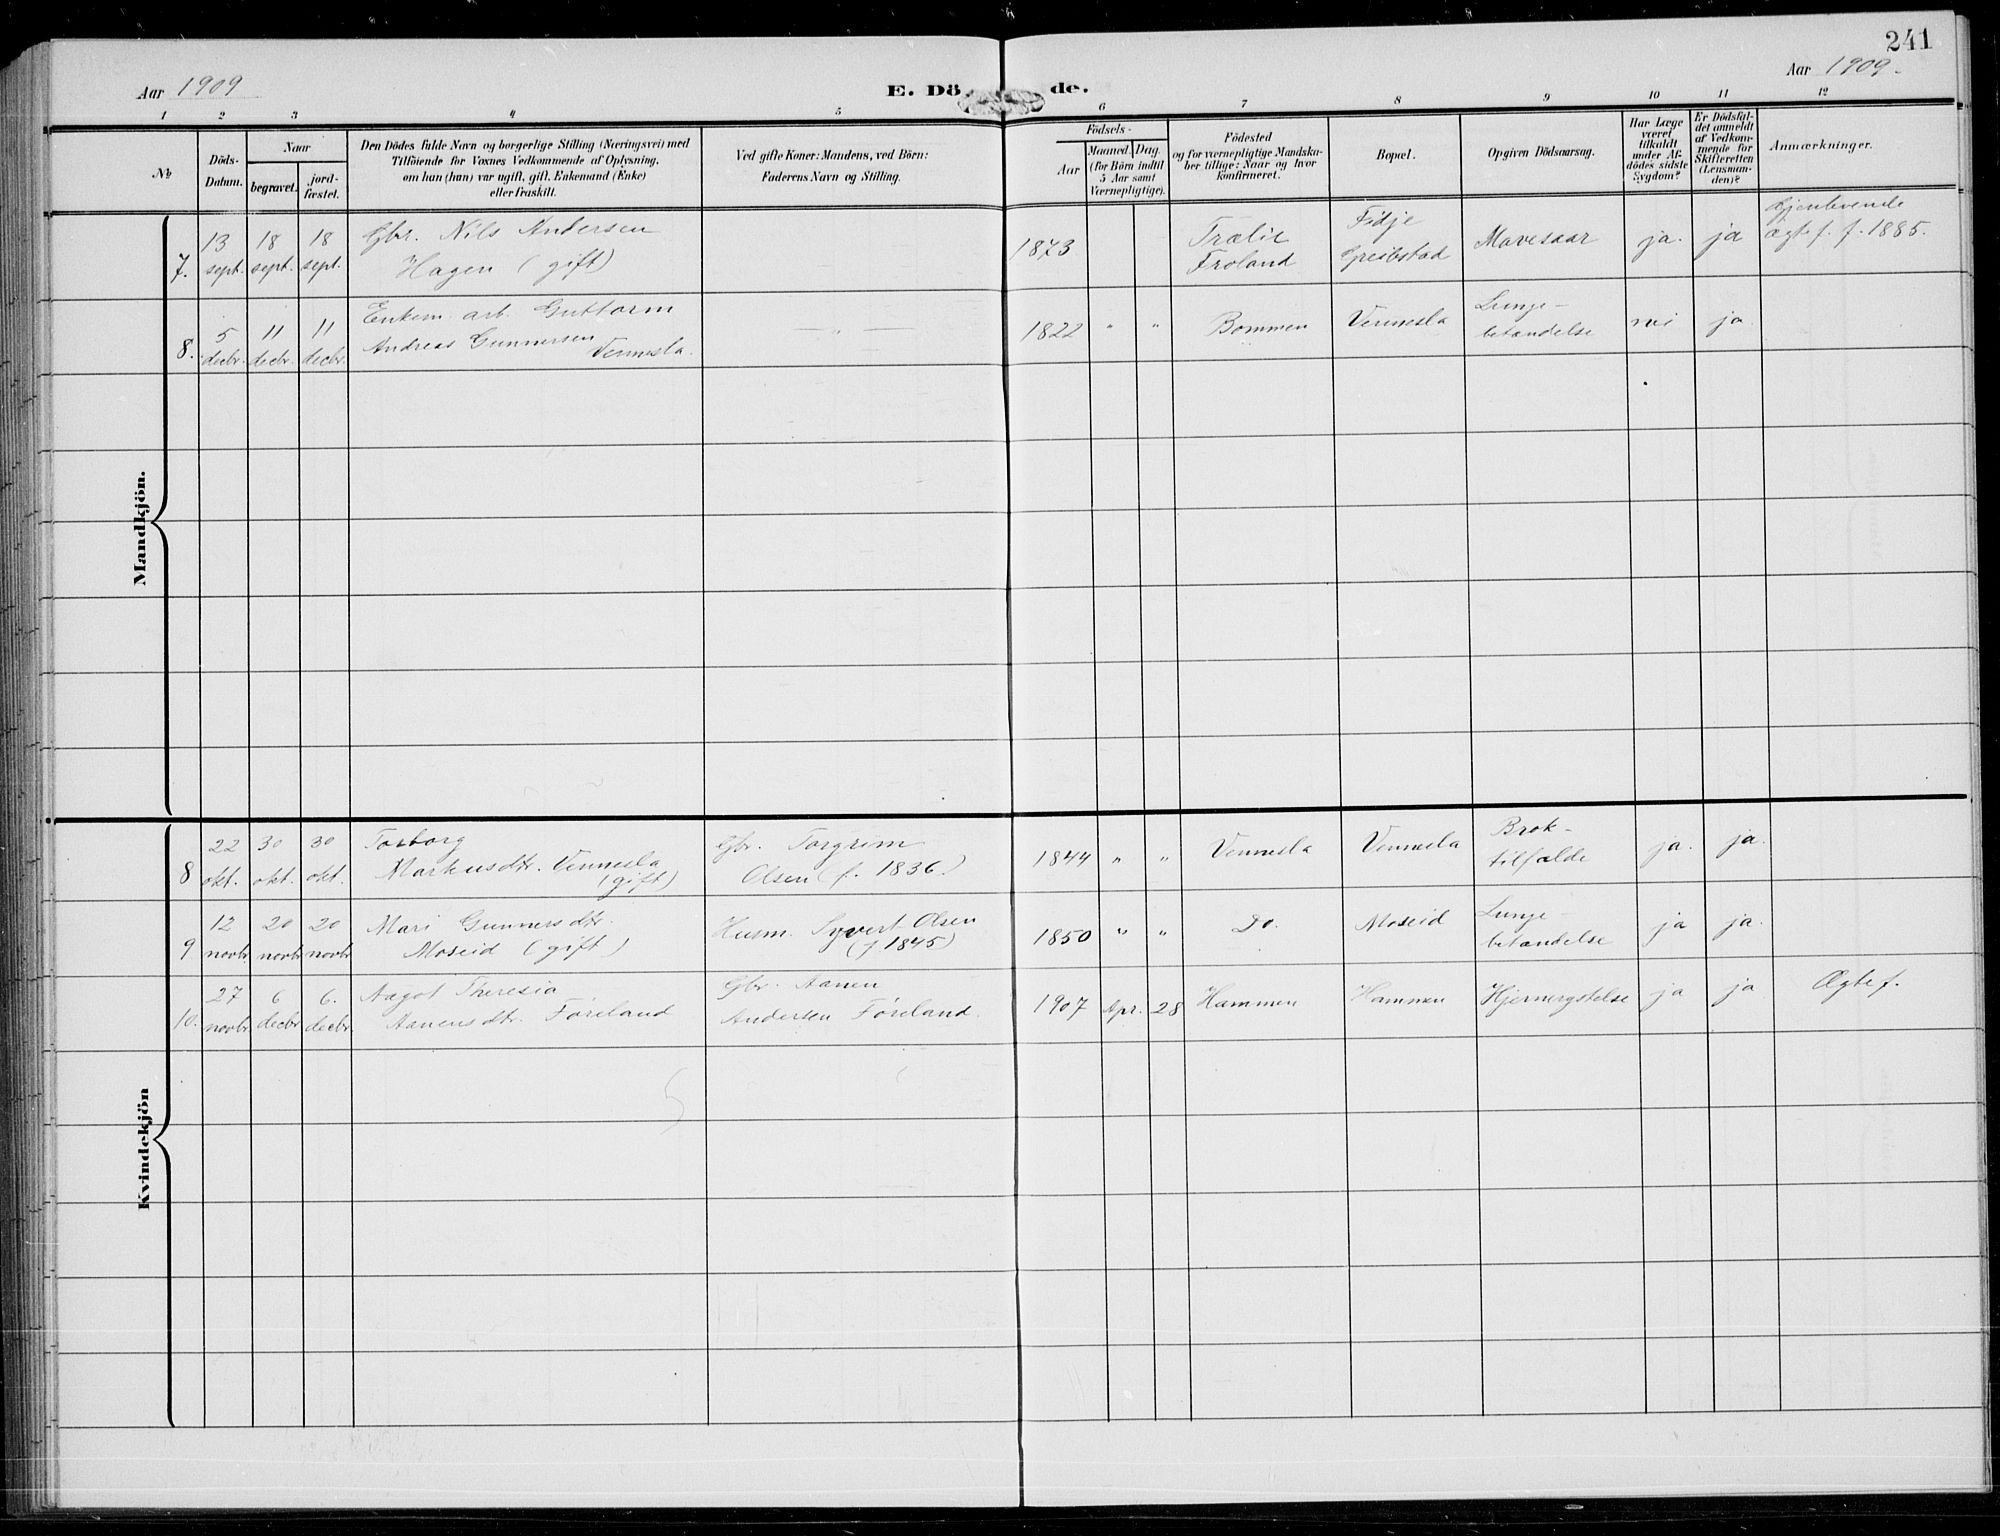 241
Aar 1909
E. Dö de.
Aar 1909.
1 2 3 4 5 6 7 8 9 10 11 12
No
Döds-
Datum.
Naar
begravet.
jord-
fæstet.
Den Dödes fulde Navn og borgerlige Stilling (Næringsvei) med
Tilföiende for Voxnes Vedkommende af Oplysning,
om han (hun) var ugift, gift, Enkemand (Enke)
eller fraskilt.
Ved gifte Koner: Mandens, ved Börn:
Faderens Navn og Stilling.
Födsels-
Aar
Maaned. Dag.
(for Börn indtil
5 Aar samt
Værnepligtige).
Födested
og for værnepligtige Mandska-
ber tillige: Naar og hvor
konfirmeret.
Bopæl.
Opgiven Dödsaarsag.
Har Læge
været
tilkaldt
under Af-
dödes sidste
Sygdom?
Er Dödsfal-
det anmeldt
af Vedkom-
mende for
Skifteretten
(Lensman-
den)?
Anmærkninger.
Mandkjön.
7. 13 sept. 18 sept. 18 sept.
Gbr. Nils Andersen
Hagen (gift)
1873
Trælie
Froland
Fidje
Greibstad
Mavesaar
ja. ja
Gjenlevende
ægtef. f. 1885.
8. 5 decbr. 11 decbr. 11 decbr.
Enkem. arb. Guttorm
Andreas Gunnersen
Vennesla.
— „ —
1822 „ „
Bommen
Vennesla
Lunge-
betændelse
nei ja.
Kvindekjön
8 22 okt. 30 okt. 30 okt.
Torborg
Markusdtr. Vennesla
(gift)
Gbr. Torgrim
Olsen (f. 1836.)
1844 „ „
Vennesla
Vennesla
Brok-
tilfælde
ja. ja.
9 12 novbr. 20 novbr. 20 novbr.
Mari Gunnersdtr.
Moseid (gift)
Husm. Syvert Olsen
(f 1845)
1850 „ „
Do.
Moseid
Lunge-
betændelse
ja ja.
10. 27 novbr. 6 decbr. 6. decbr.
Aagot Theresia
Aanensdtr. Føreland
Gbr. Aanen
Andersen Føreland.
1907 Apr. 28
Hammen
Hammen
Hjernerystelse
ja ja
Ægtef.